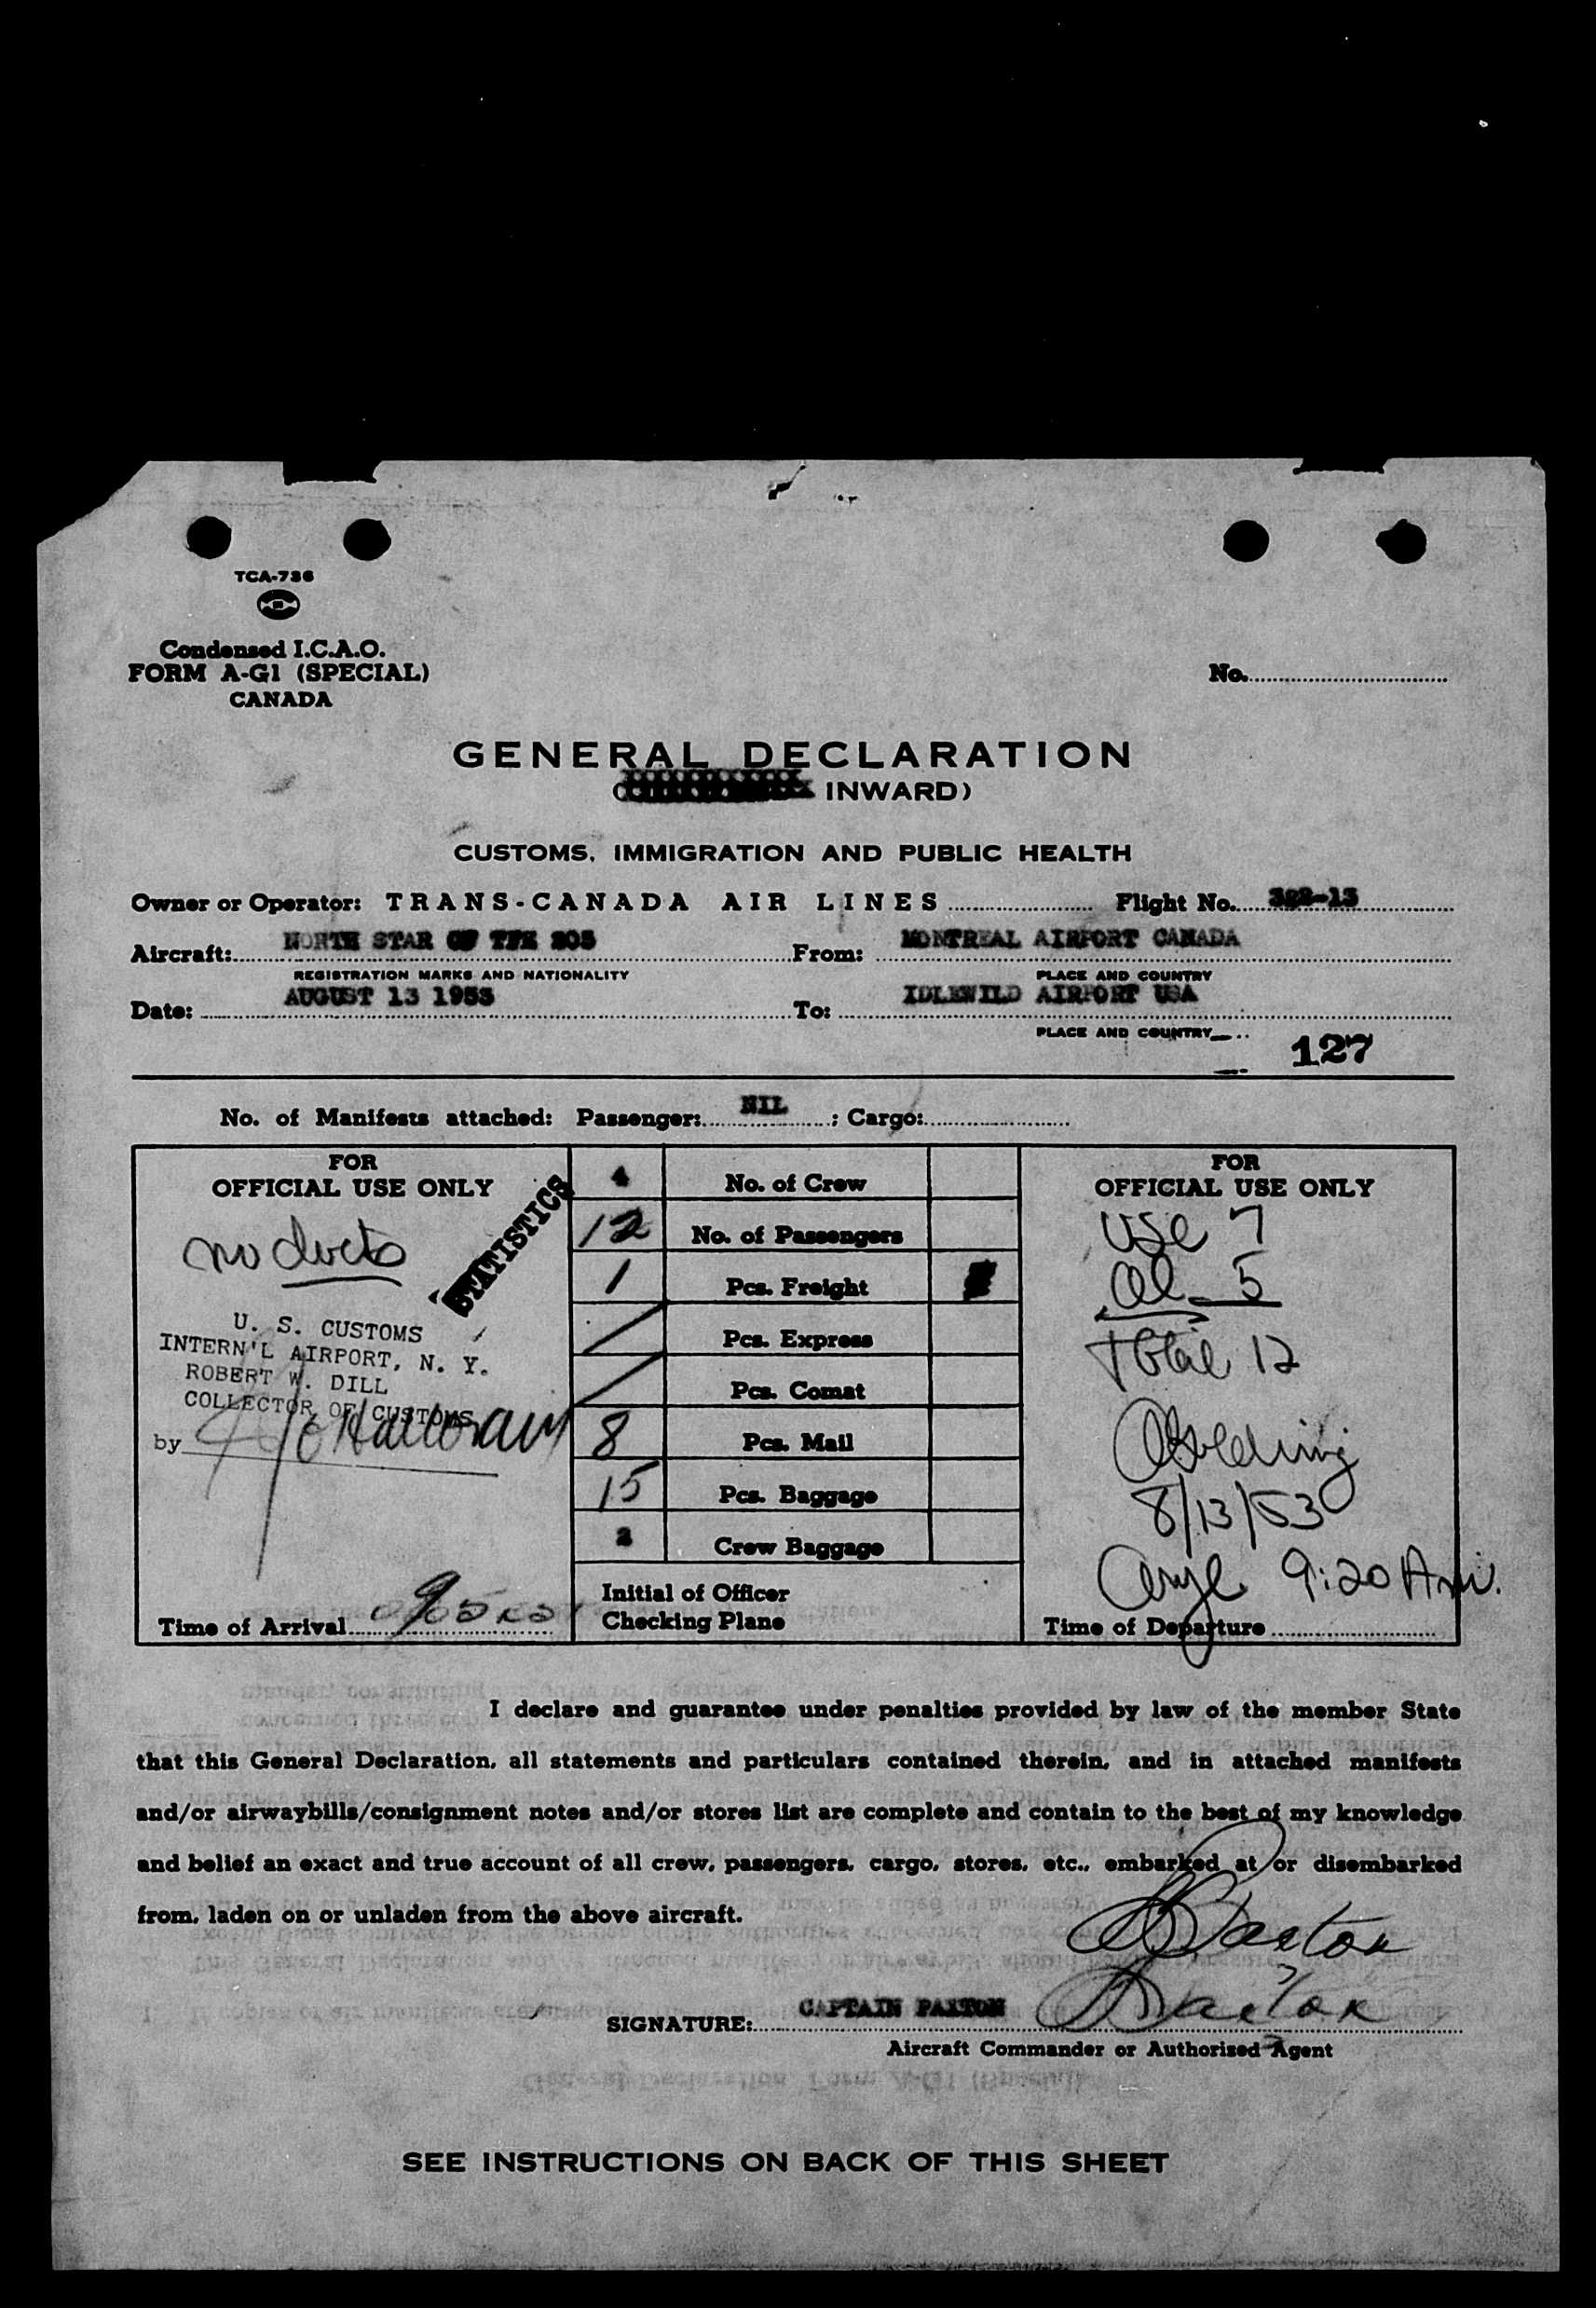 TCA-736
Condensed I.C.A.O.
FORM A-G1 (SPECIAL)
CANADA
No.
GENERAL DECLARATION
( INWARD)
CUSTOMS, IMMIGRATION AND PUBLIC HEALTH
Owner or Operator: TRANS-CANADA AIR LINES Flight No. 322-13
Aircraft: NORTH STAR CF TFE 205 From: MONTREAL AIRPORT CANADA
REGISTRATION MARKS AND NATIONALITY PLACE AND COUNTRY
Date: AUGUST 13 1953 To: IDLEWILD AIRPORT USA
PLACE AND COUNTRY
127
No. of Manifests attached: Passenger: NIL ; Cargo:
FOR
OFFICIAL USE ONLY
no docts
STATISTICS
U. S. CUSTOMS
INTERN'L AIRPORT, N. Y.
ROBERT W. DILL
COLLECTOR OF CUSTOMS
by O'Halloran
Time of Arrival
4 No. of Crew
12 No. of Passengers
1 Pcs. Freight
Pcs. Express
Pcs. Comat
8 Pcs. Mail
15 Pcs. Baggage
Crew Baggage
Initial of Officer
Checking Plane
FOR
OFFICIAL USE ONLY
USC 7
al - 5
Total 12
8/13/53
9:20 Am.
Time of Departure
I declare and guarantee under penalties provided by law of the member State
that this General Declaration, all statements and particulars contained therein, and in attached manifests
and/or airwaybills/consignment notes and/or stores list are complete and contain to the best of my knowledge
and belief an exact and true account of all crew, passengers, cargo, stores, etc., embarked at or disembarked
from, laden on or unladen from the above aircraft.
Paxton
SIGNATURE: CAPTAIN PAXTON Paxton
Aircraft Commander or Authorized Agent
SEE INSTRUCTIONS ON BACK OF THIS SHEET